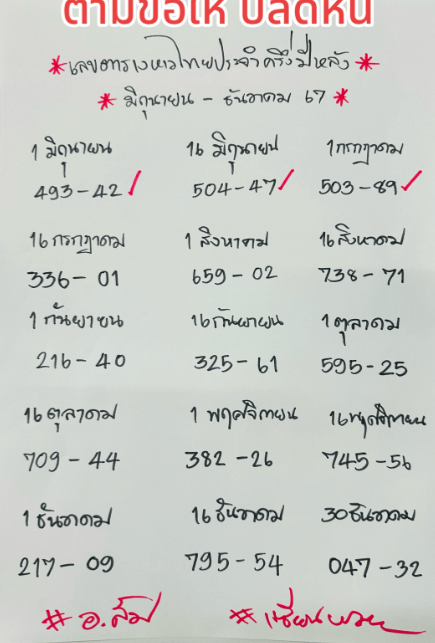 ตามขอให้ ปลดหนี้
*เลขตารางหวยไทยประจำครึ่งปีหลัง*
* มิถุนายน - ธันวาคม 67 *
1 มิถุนายน 16 มิถุนายน 1 กรกฎาคม
493-42 504-47 503-89
16 กรกฎาคม 1 สิงหาคม 16 สิงหาคม
336-01 659-02 738-71
1 กันยายน 16 กันยายน 1 ตุลาคม
216-40 325-61 595-25
16 ตุลาคม 1 พฤศจิกายน 16 พฤศจิกายน
709-44 382-26 745-56
1 ธันวาคม 16 ธันวาคม 30 ธันวาคม
217-09 795-54 047-32
# อ.ส้ม